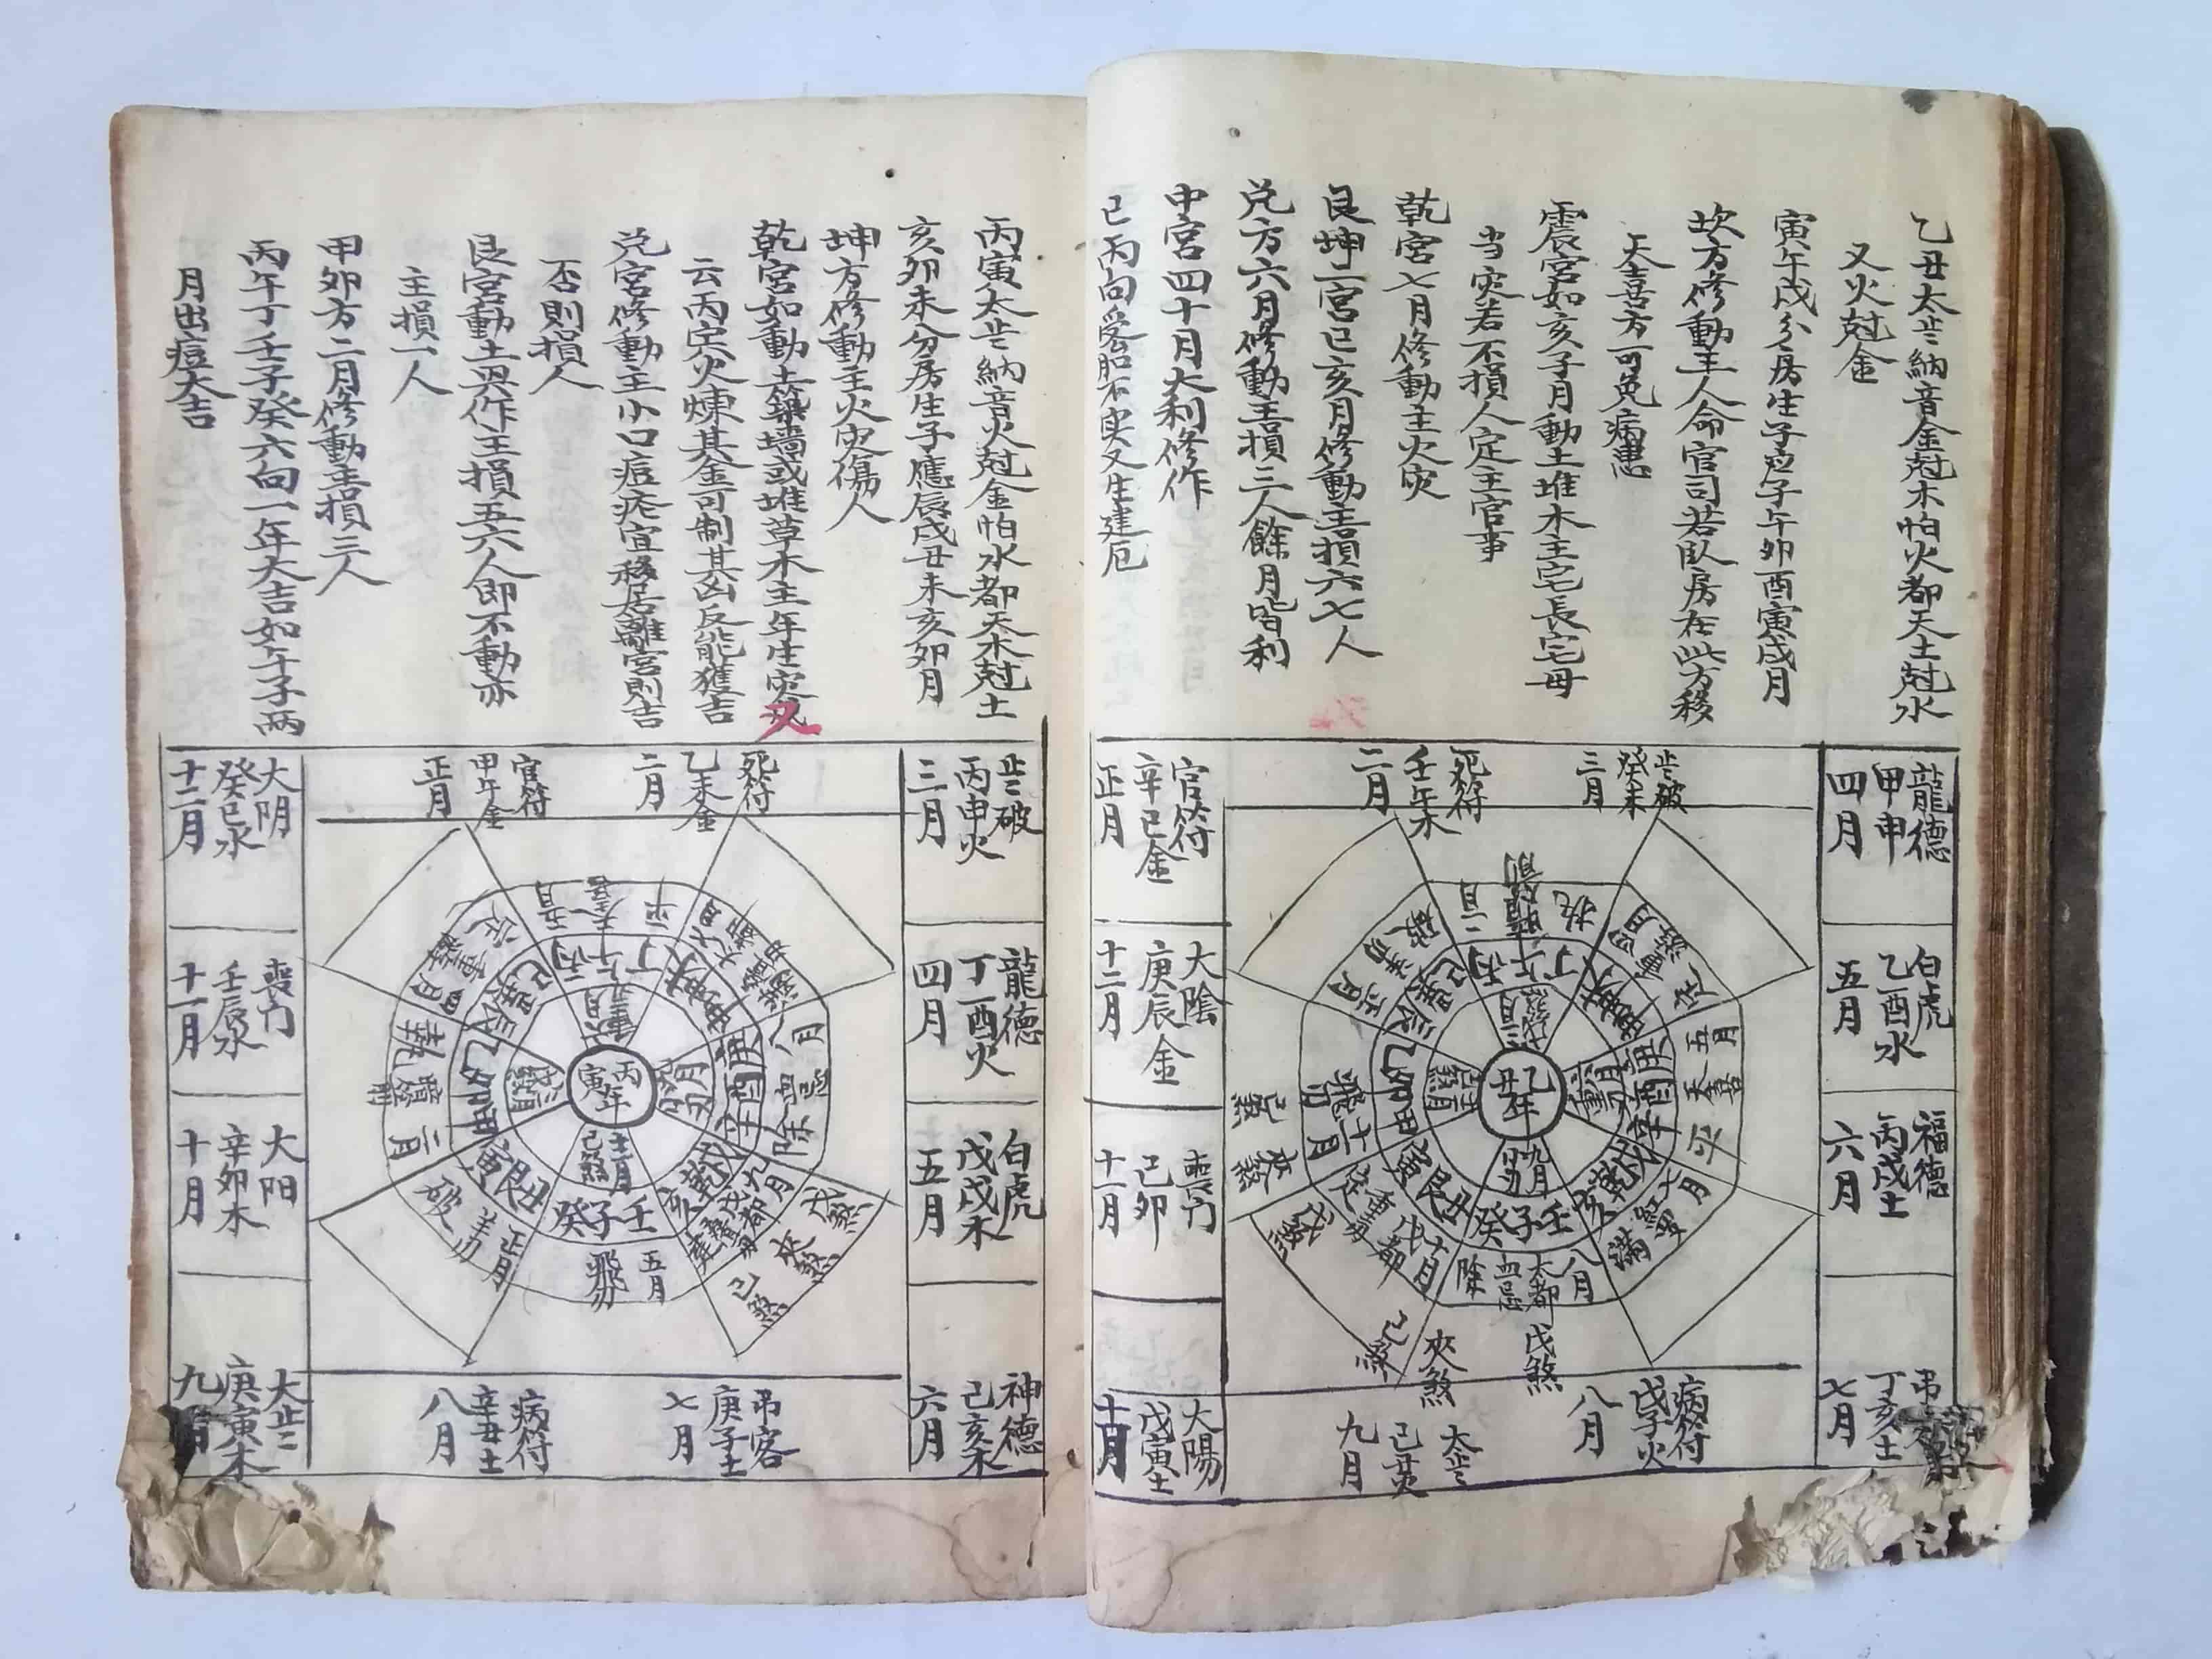 乙丑太岁納音金尅木怕火都天土尅水
又火尅金
寅午戌分房生子应子午卯酉寅戌月
坎方修動主人命官司若臥房在此方移
天喜方可免病患
震宮如亥子月動土堆木主宅長宅母
当灾若不損人定主官事
乾宮七月修動主火灾
艮坤二宮巳亥月修動主損六七人
兑方六月修動主損三人餘月皆利
中宮四十月大利修作
已丙向受胎不实又生建厄
龍德
甲申
四月
白虎
乙酉水
五月
福德
丙戌土
六月
吊
丁亥土
七月
岁破
癸未
三月
死符
壬午木
二月
官符
辛巳金
正月
大陰
庚辰金
十二月
喪门
己卯
十一月
大陽
戊寅土
十月
病符
戊子火
八月
太岁
己丑火
九月
乙丑年
丁午丙
庚酉辛
壬子癸
丑艮寅
甲卯乙
辰巽巳
戊煞
夾煞
己煞
丙寅太岁納音火尅金怕水都天木尅土
亥卯未分房生子應辰戌丑未亥卯月
坤方修動主火灾傷人
乾宮如動土築墻或堆草木主年生灾
又
云丙寅火煉其金可制其凶反能獲吉
兑宮修動主小口痘疮宜移居離宮則吉
否則損人
艮宮動土興作主損五六人即不動亦
主損一人
甲卯方二月修動主損三人
丙午丁壬子癸六向一年大吉如午子两
月出痘大吉
岁破
丙申火
三月
龍德
丁酉火
四月
白虎
戊戌木
五月
神德
己亥木
六月
死符
乙未金
二月
官符
甲午金
正月
大阴
癸巳水
十二月
喪门
壬辰水
十一月
大阳
辛卯木
十月
大岁
庚寅木
九月
吊客
庚子土
七月
病符
辛丑土
八月
丙寅年
丁午丙
庚酉辛
壬子癸
丑艮寅
甲卯乙
辰巽巳
戊煞
夾煞
己煞